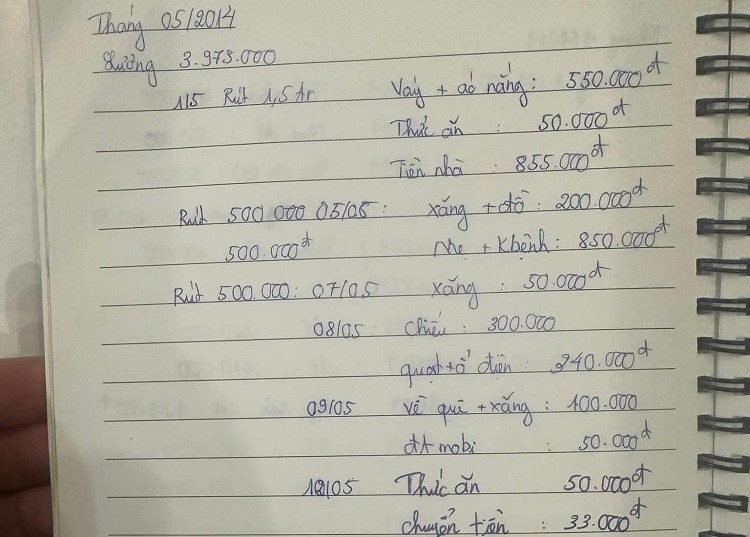 Tháng 05/2014
Lương 3.973.000
1/5 Rút 1,5 tr Váy + áo nắng: 550.000đ
Thức ăn : 50.000đ
Tiền nhà : 855.000đ
Rút 500 000 05/05: xăng + đồ : 200.000đ
500.000đ Mẹ + Kbệnh : 850.000đ
Rút 500.000: 07/05 xăng : 50.000đ
08/05 chiếu : 300.000
quạt + ổ điện : 240.000đ
09/05 về quê + xăng : 100.000
đt mobi : 50.000đ
05 Thức ăn 50.000đ
chuyển tiền : 33.000đ